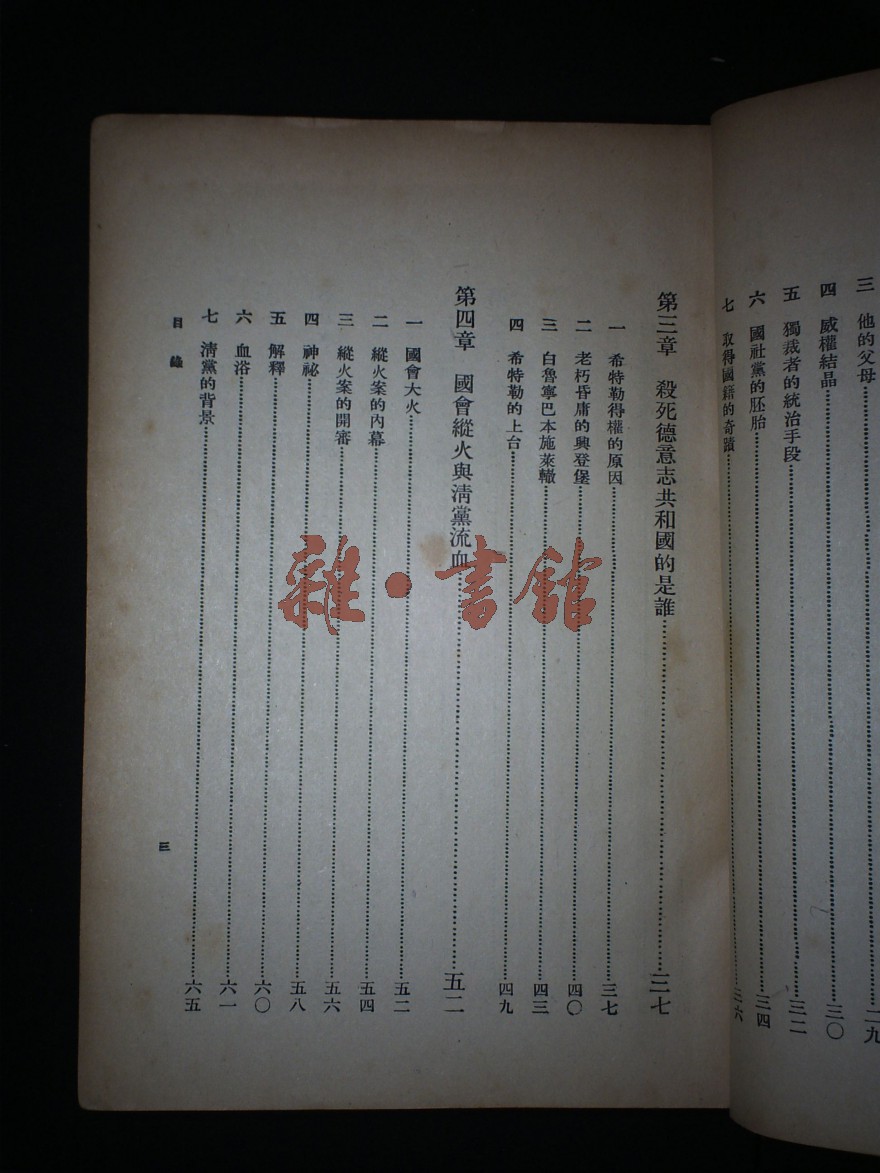 三 他的父母……二九
四 威權結晶……三〇
五 獨裁者的統治手段……三二
六 國社黨的胚胎……三四
七 取得國籍的奇蹟……三六
第三章 殺死德意志共和國的是誰……三七
一 希特勒得權的原因……三七
二 老朽昏庸的興登堡……四〇
三 白魯寧巴本施萊轍……四三
四 希特勒的上台……四九
第四章 國會縱火與清黨流血……五二
一 國會大火……五二
二 縱火案的內幕……五四
三 縱火案的開審……五六
四 神祕……五八
五 解釋……六〇
六 血浴……六一
七 清黨的背景……六五
目錄
三
雜·書館